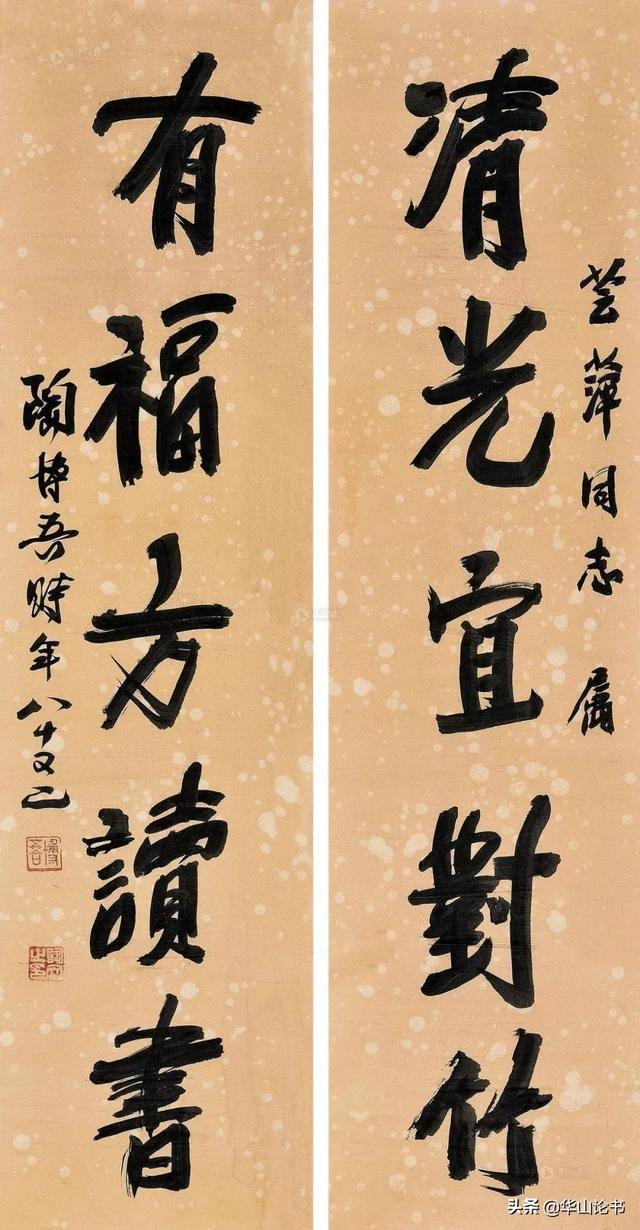 芸萍同志属
清光宜對竹
有福方讀書
陶博吾時年八十又二
头条 @华山论书